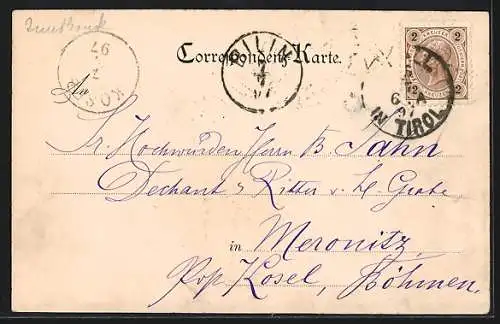 Innsbruck
Correspondenz-Karte.
BILIN
97
KOS
2 KREUZER 2
2 2
HALL
IN TIROL
6
97
An
Sr. Hochwürden Herrn B Jahn
Dechant & Ritter v. hl. Grabe
in Meronitz
Post Kosel, Böhmen.